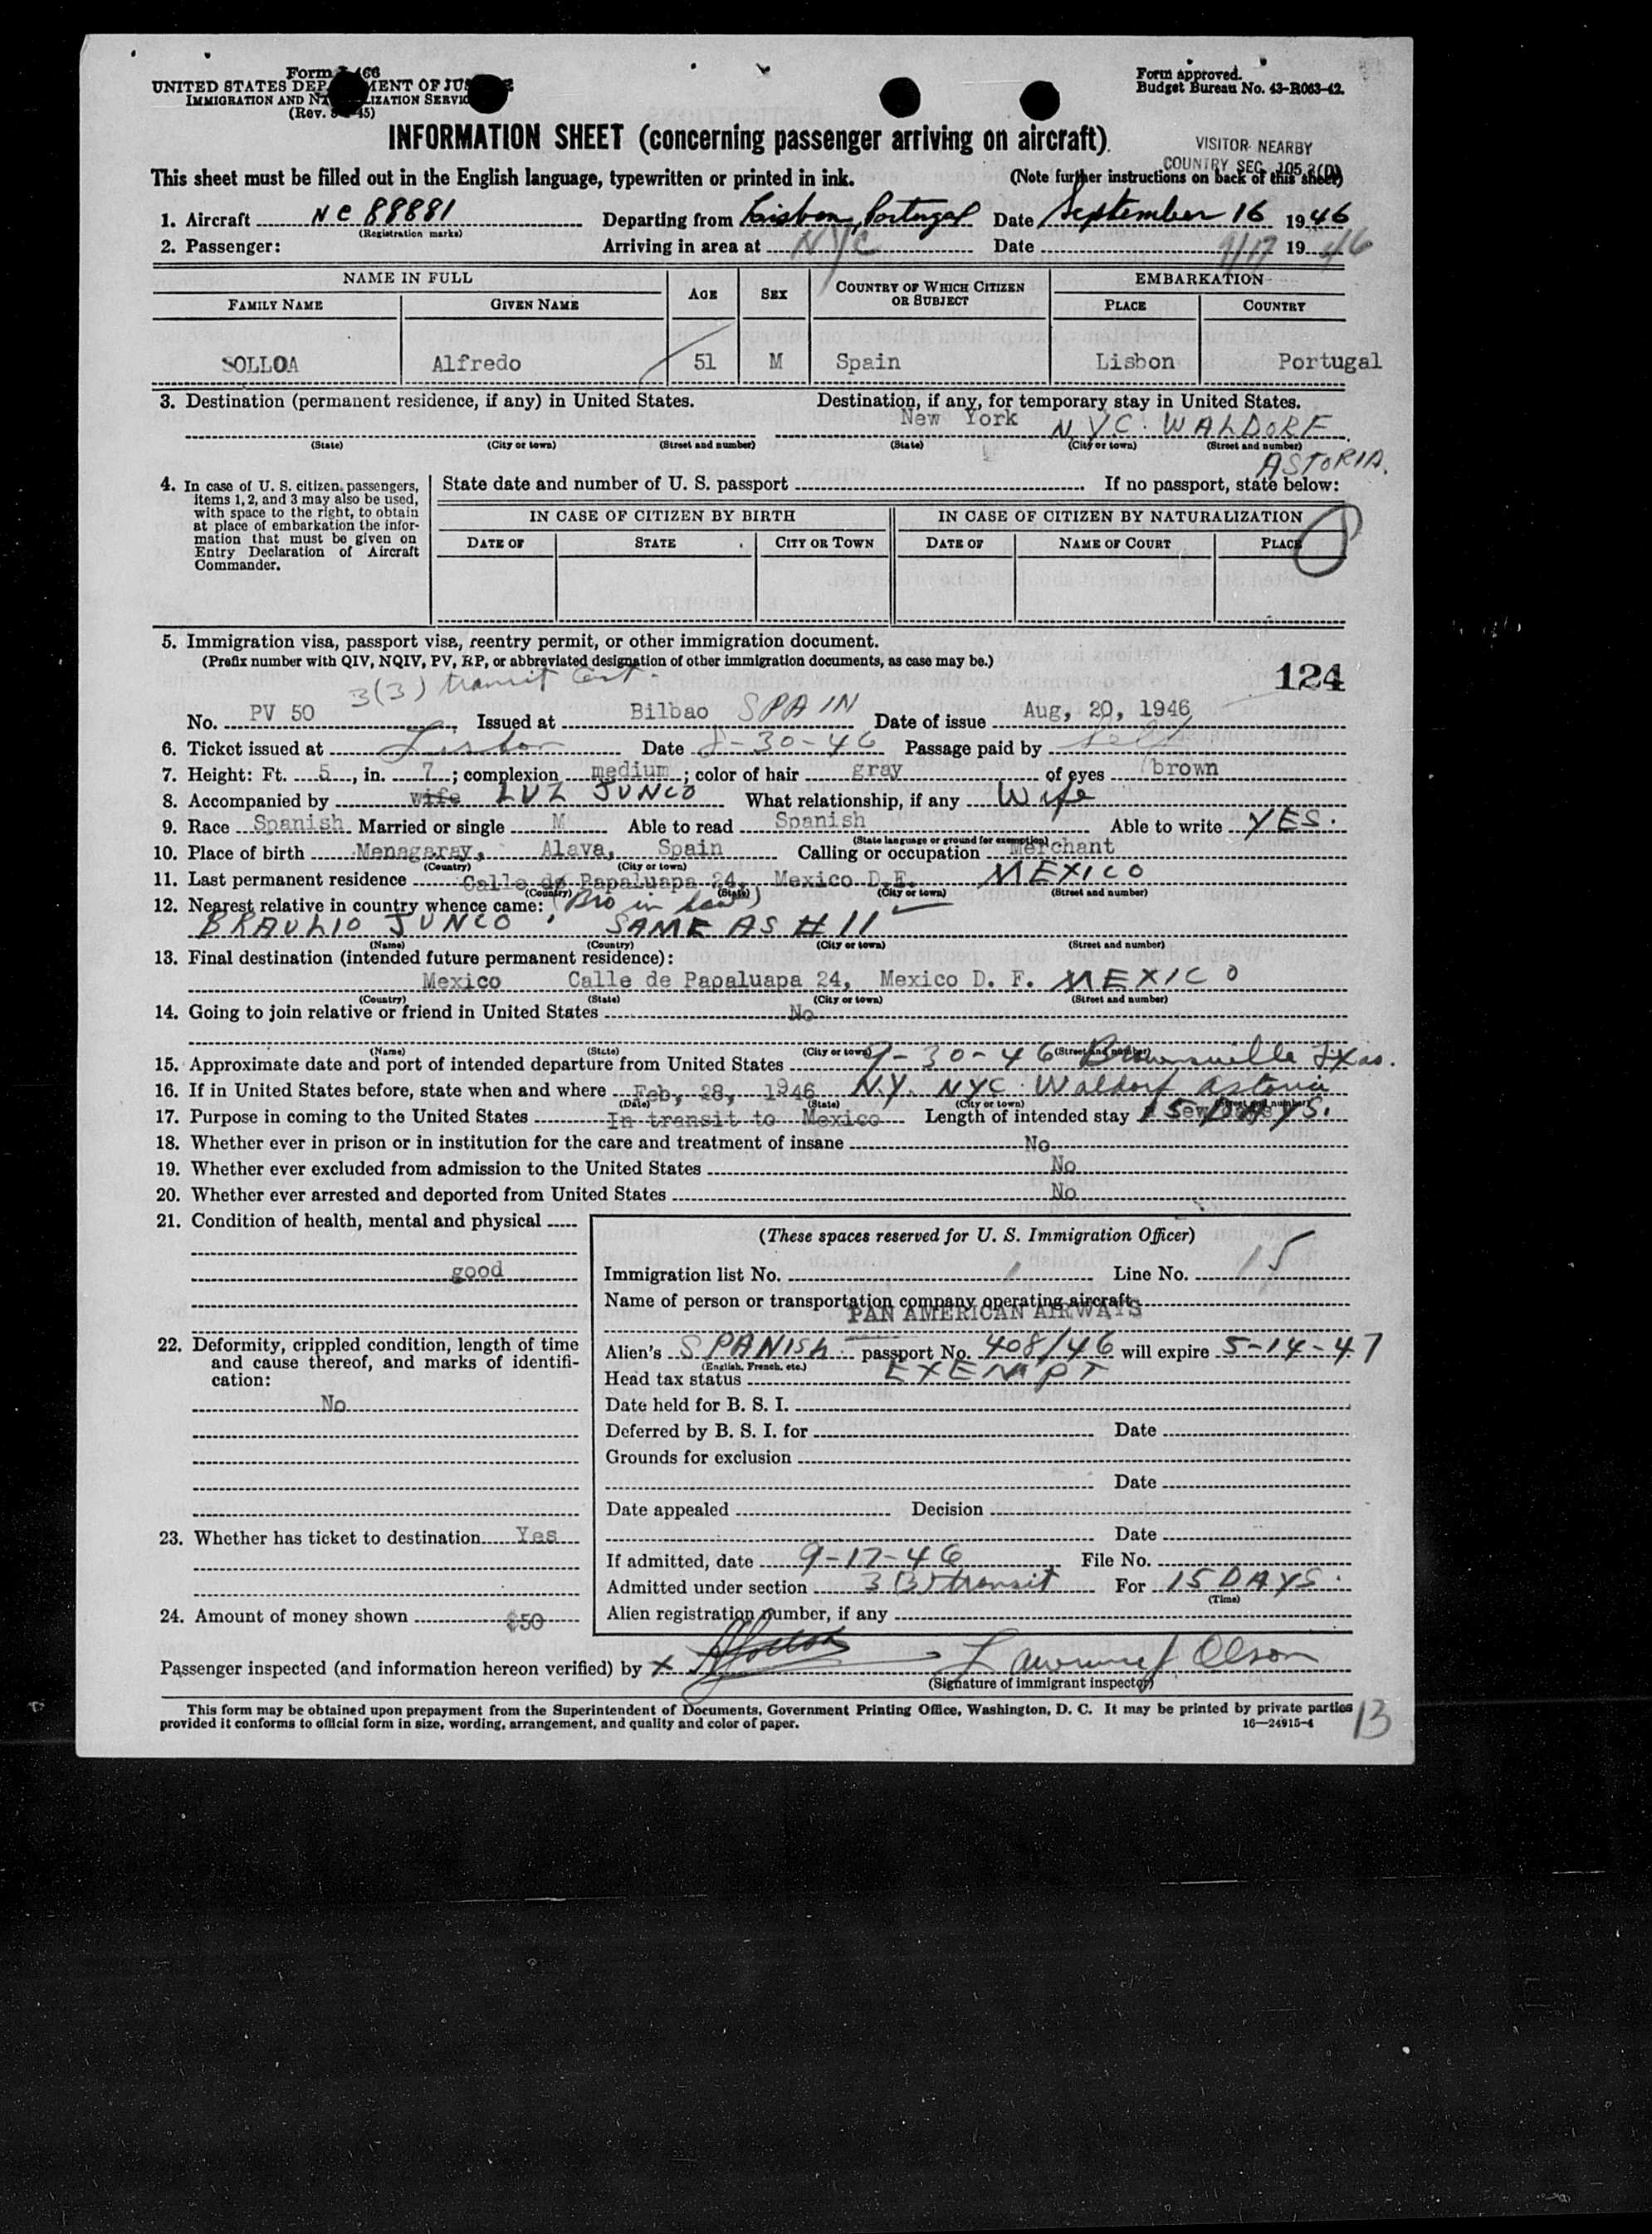 Form 466
UNITED STATES DEPARTMENT OF JUSTICE
IMMIGRATION AND NATURALIZATION SERVICE
Form approved.
Budget Bureau No. 43-R063-42.
INFORMATION SHEET (concerning passenger arriving on aircraft)
VISITOR NEARBY
COUNTRY SEC. 105.3(D)
This sheet must be filled out in the English language, typewritten or printed in ink. (Note further instructions on back of this sheet)
1. Aircraft NC 88881 Departing from Lisbon, Portugal Date September 16 1946
(Registration marks)
2. Passenger: Arriving in area at NYC Date 9/17 1946
NAME IN FULL AGE SEX COUNTRY OF WHICH CITIZEN OR SUBJECT EMBARKATION
FAMILY NAME GIVEN NAME PLACE COUNTRY
SOLLOA Alfredo 51 M Spain Lisbon Portugal
3. Destination (permanent residence, if any) in United States. Destination, if any, for temporary stay in United States.
New York N.Y.C. WALDORF
(State) (City or town) (Street and number) (State) (City or town) (Street and number)
ASTORIA.
4. In case of U. S. citizen passengers, items 1, 2, and 3 may also be used, with space to the right, to obtain at place of embarkation the information that must be given on Entry Declaration of Aircraft Commander.
State date and number of U. S. passport If no passport, state below:
IN CASE OF CITIZEN BY BIRTH IN CASE OF CITIZEN BY NATURALIZATION
DATE OF STATE CITY OR TOWN DATE OF NAME OF COURT PLACE
5. Immigration visa, passport visa, reentry permit, or other immigration document.
(Prefix number with QIV, NQIV, PV, RP, or abbreviated designation of other immigration documents, as case may be.)
124
3(3) transit Cert.
No. PV 50 Issued at Bilbao SPAIN Date of issue Aug, 20, 1946
6. Ticket issued at Lisbon Date 8-30-46 Passage paid by Self
7. Height: Ft. 5, in. 7; complexion medium; color of hair gray of eyes brown
8. Accompanied by wife LUZ JUNCO What relationship, if any Wife
9. Race Spanish Married or single M Able to read Spanish Able to write YES.
(State language or ground for exemption)
10. Place of birth Menagaray, Alava, Spain Calling or occupation Merchant
(Country) (City or town)
11. Last permanent residence Calle de Papaluapa 24, Mexico D.F. MEXICO
(Country) (State) (City or town) (Street and number)
12. Nearest relative in country whence came: (Bro in law)
BRAULIO JUNCO, SAME AS #11
(Name) (Country) (City or town) (Street and number)
13. Final destination (intended future permanent residence):
Mexico Calle de Papaluapa 24, Mexico D. F. MEXICO
(Country) (State) (City or town) (Street and number)
14. Going to join relative or friend in United States No
(Name) (State) (City or town) (Street and number)
15. Approximate date and port of intended departure from United States 9-30-46 Brownsville Txas.
16. If in United States before, state when and where Feb, 28, 1946 N.Y. NYC. Waldorf Astoria
(Date) (State) (City or town) (Street and number)
17. Purpose in coming to the United States In transit to Mexico Length of intended stay 15 DAYS.
18. Whether ever in prison or in institution for the care and treatment of insane No
19. Whether ever excluded from admission to the United States No
20. Whether ever arrested and deported from United States No
21. Condition of health, mental and physical
good
(These spaces reserved for U. S. Immigration Officer)
Immigration list No. 1 Line No. 15
Name of person or transportation company operating aircraft
PAN AMERICAN AIRWAYS
22. Deformity, crippled condition, length of time and cause thereof, and marks of identification:
No
Alien's SPANISH passport No. 408/46 will expire 5-14-47
(English, French, etc.)
Head tax status EXEMPT
Date held for B. S. I.
Deferred by B. S. I. for Date
Grounds for exclusion
Date
Date appealed Decision
23. Whether has ticket to destination Yes
Date
If admitted, date 9-17-46 File No.
Admitted under section 3(3) transit For 15 DAYS.
(Time)
24. Amount of money shown $50
Alien registration number, if any
Passenger inspected (and information hereon verified) by X ASolloa Lawrence J Olson
(Signature of immigrant inspector)
This form may be obtained upon prepayment from the Superintendent of Documents, Government Printing Office, Washington, D. C. It may be printed by private parties
provided it conforms to official form in size, wording, arrangement, and quality and color of paper. 16—24915-4
13